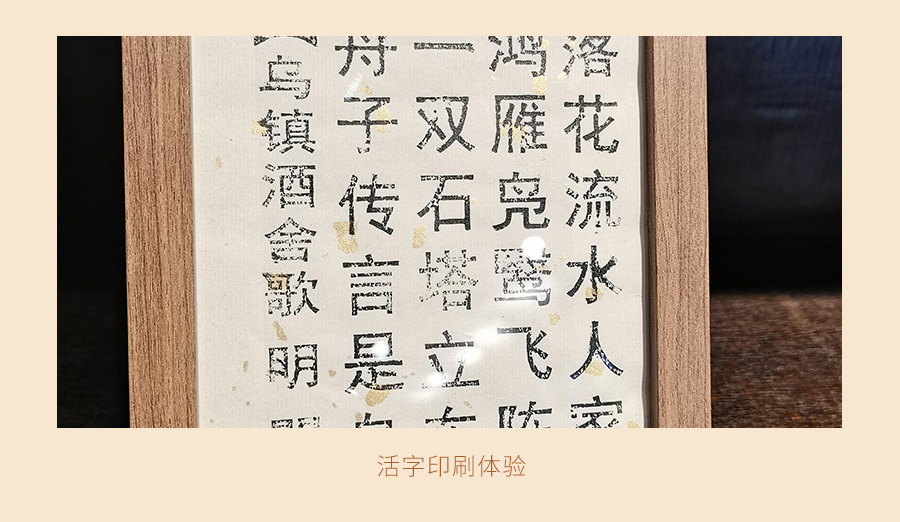 落花流水人家
鸿雁凫鹭飞
一双石塔立
舟子传言是
乌镇酒舍歌 明
活字印刷体验